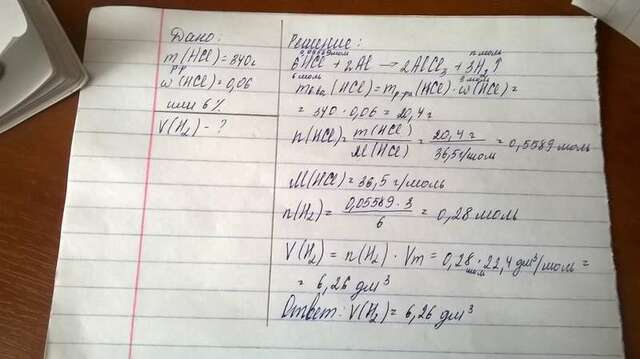 Дано:
m(HCl)=340г
р-р
ω(HCl)=0,06
или 6%
V(H₂)-?
Решение:
n моль
6HCl + 2Al → 2AlCl₃ + 3H₂↑
6 моль 3 моль
m р-ра(HCl)·ω(HCl)=
= 340·0,06=20,4г
n(HCl)= m(HCl) / M(HCl) = 20,4г / 36,5г/моль = 0,5589 моль
M(HCl)=36,5 г/моль
n(H₂)= 0,05589·3 / 6 = 0,28 моль
V(H₂)=n(H₂)·Vm=0,28 моль·22,4 дм³/моль=
= 6,26 дм³
Ответ: V(H₂)=6,26 дм³